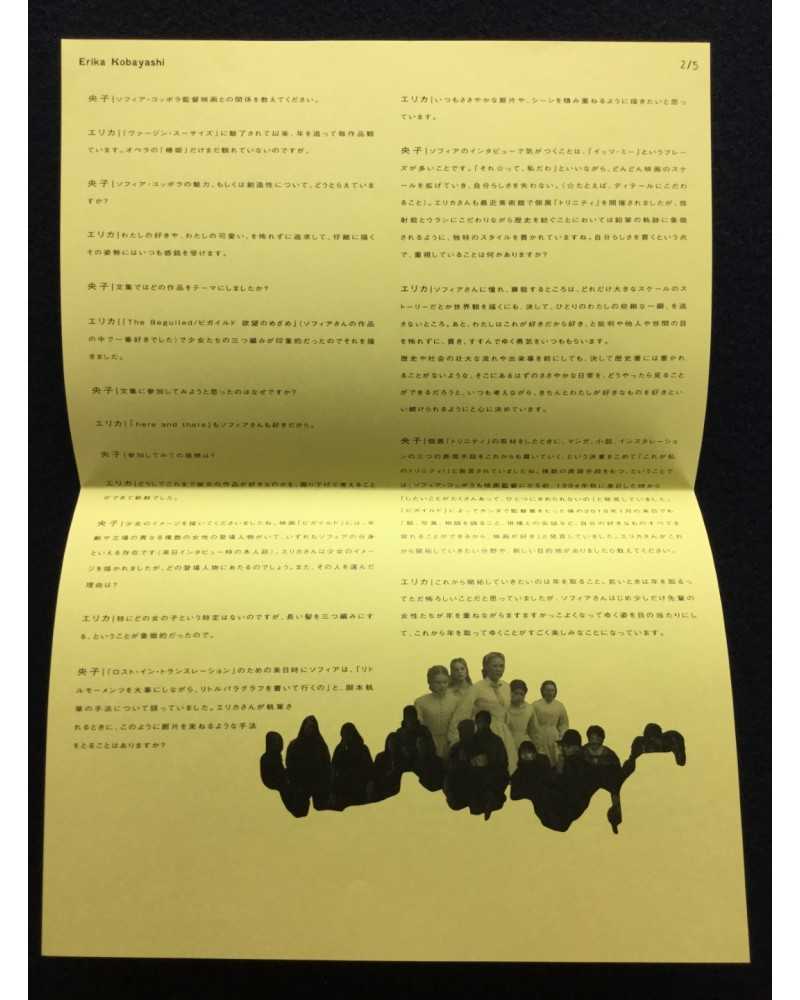 Erika Kobayashi
2/5
央子|ソフィア・コッポラ監督映画との関係を教えてください。
エリカ|「ヴァージン・スーサイズ」に魅了されて以来、年を追って毎作品観
ています。オペラの「椿姫」だけまだ観れていないのですが。
央子|ソフィア・コッポラの魅力、もしくは創造性について、どうとらえていま
すか?
エリカ|わたしの好きや、わたしの可愛い、を怖れずに追求して、仔細に描く
その姿勢にはいつも感銘を受けます。
央子|文集ではどの作品をテーマにしましたか?
エリカ|「The Beguiled/ビガイルド 欲望のめざめ」(ソフィアさんの作品
の中で一番好きでした)で少女たちの三つ編みが印象的だったのでそれを描
きました。
央子|文集に参加してみようと思ったのはなぜですか?
エリカ|「here and there」もソフィアさんも好きだから。
央子|参加してみての感想は?
エリカ|どうしてこれまで彼女の作品が好きなのかを、掘り下げて考えること
ができて新鮮でした。
央子|少女のイメージを描いてくださいましたね。映画「ビガイルド」には、年
齢や立場の異なる複数の女性の登場人物がいて、いずれもソフィアの分身
といえる存在です(来日インタビュー時の本人談)。エリカさんは少女のイメー
ジを描かれましたが、どの登場人物にあたるのでしょう。また、その人を選んだ
理由は?
エリカ|特にどの女の子という特定はないのですが、長い髪を三つ編みにす
る、ということが象徴的だったので。
央子|「ロスト・イン・トランスレーション」のための来日時にソフィアは、「リト
ルモーメンツを大事にしながら、リトルパラグラフを書いて行くの」と、脚本執
筆の手法について語っていました。エリカさんが執筆さ
れるときに、このように断片を束ねるような手法
をとることはありますか?
エリカ|いつもささやかな断片や、シーンを積み重ねるように描きたいと思っ
ています。
央子|ソフィアのインタビューで気がつくことは、「イッツ・ミー」というフレー
ズが多いことです。「それ☆って、私だわ」といいながら、どんどん映画のスケ
ールを拡げていき、自分らしさを失わない。(☆たとえば、ディテールにこだわ
ること)。エリカさんも最近美術館で個展「トリニティ」を開催されましたが、放
射能とウランにこだわりながら歴史を紡ぐことにおいては鉛筆の軌跡に象徴
されるように、独特のスタイルを貫かれていますね。自分らしさを貫くという点
で、重視していることは何かありますか?
エリカ|ソフィアさんに憧れ、尊敬するところは、どれだけ大きなスケールのス
トーリーだとか世界観を描くにも、決して、ひとりのわたしの些細な一瞬、を逃
さないところ。あと、わたしはこれが好きだから好き、と批判や他人や世間の目
を怖れずに、貫き、すすんでゆく勇気をいつももらいます。
歴史や社会の壮大な流れや出来事を前にしても、決して歴史書には書かれ
ることがないような、そこにあるはずのささやかな日常を、どうやったら見ること
ができるだろうと、いつも考えながら、きちんとわたしが好きなものを好きとい
い続けられるようにと心に決めています。
央子|個展「トリニティ」の取材をしたときに、マンガ、小説、インスタレーショ
ンの三つの表現手段をこれからも貫いていく、という決意をこめて「これが私
のトリニティ!」と発言されていましたね。複数の表現手段をもつ、ということで
は、ソフィア・コッポラも映画監督になる前、1994年秋に来日した時から
「したいことがたくさんあって、ひとつにきめられないの」と発言していました。
を撮れることができるから、映画が好き」と発言していました。エリカさんがこれ
から開拓していきたい分野や、新しい目的地がありましたら教えてください。
エリカ|これから開拓していきたいのは年を取ること。若いときは年を取るっ
てただ怖ろしいことだと思っていましたが、ソフィアさんはじめ少しだけ先輩の
女性たちが年を重ねながらますますかっこよくなってゆく姿を目の当たりにし
て、これから年を取ってゆくことがすごく楽しみなことになっています。